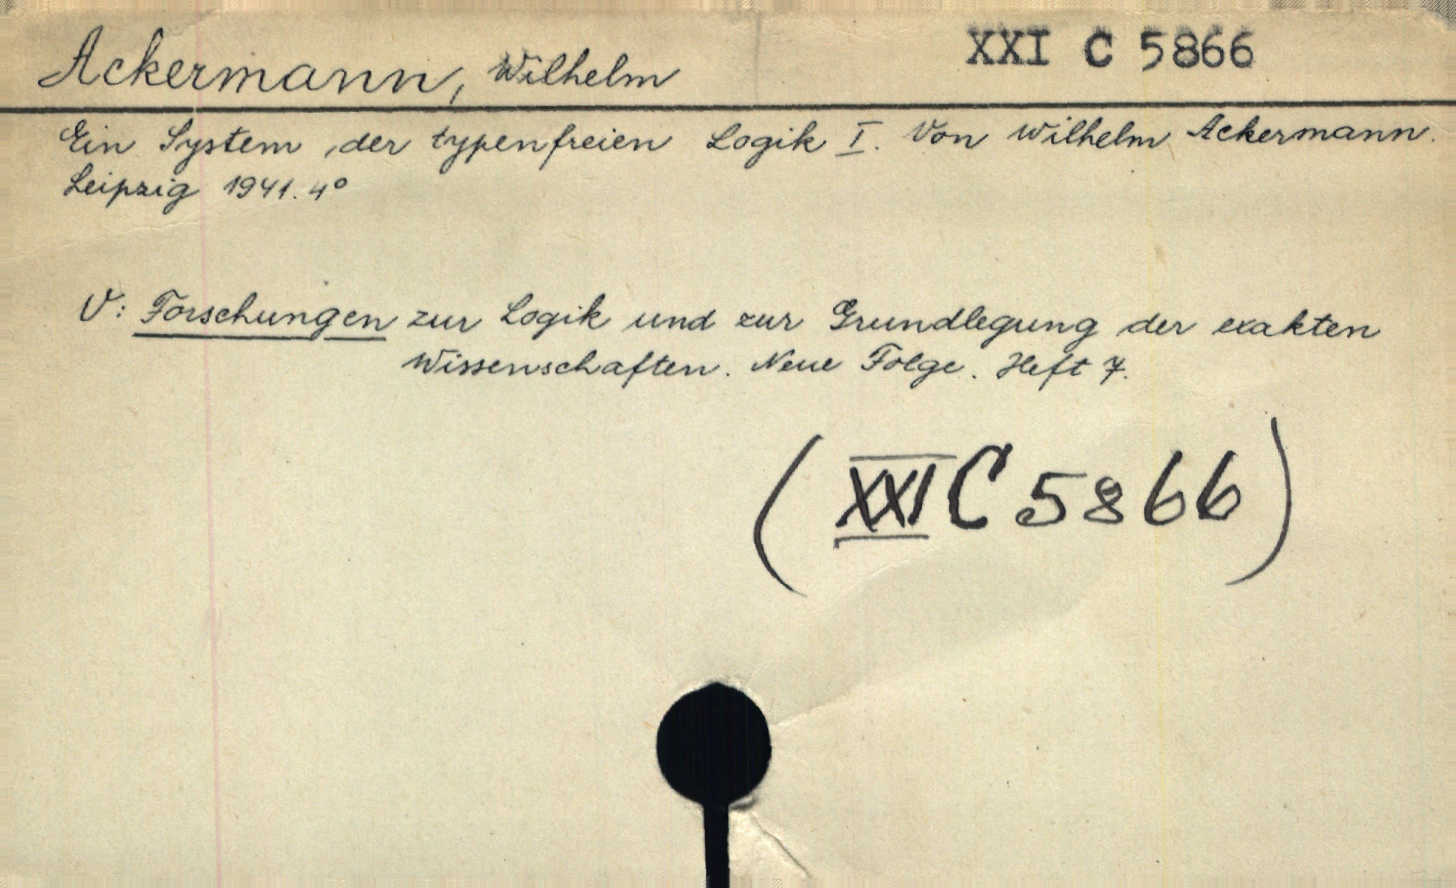 Ackermann, Wilhelm XXI C 5866
Ein System der typenfreien Logik I. Von Wilhelm Ackermann.
Leipzig 1941. 4°
V: Forschungen zur Logik und zur Grundlegung der exakten
Wissenschaften. Neue Folge. Heft 7.
(XXI C 5866)